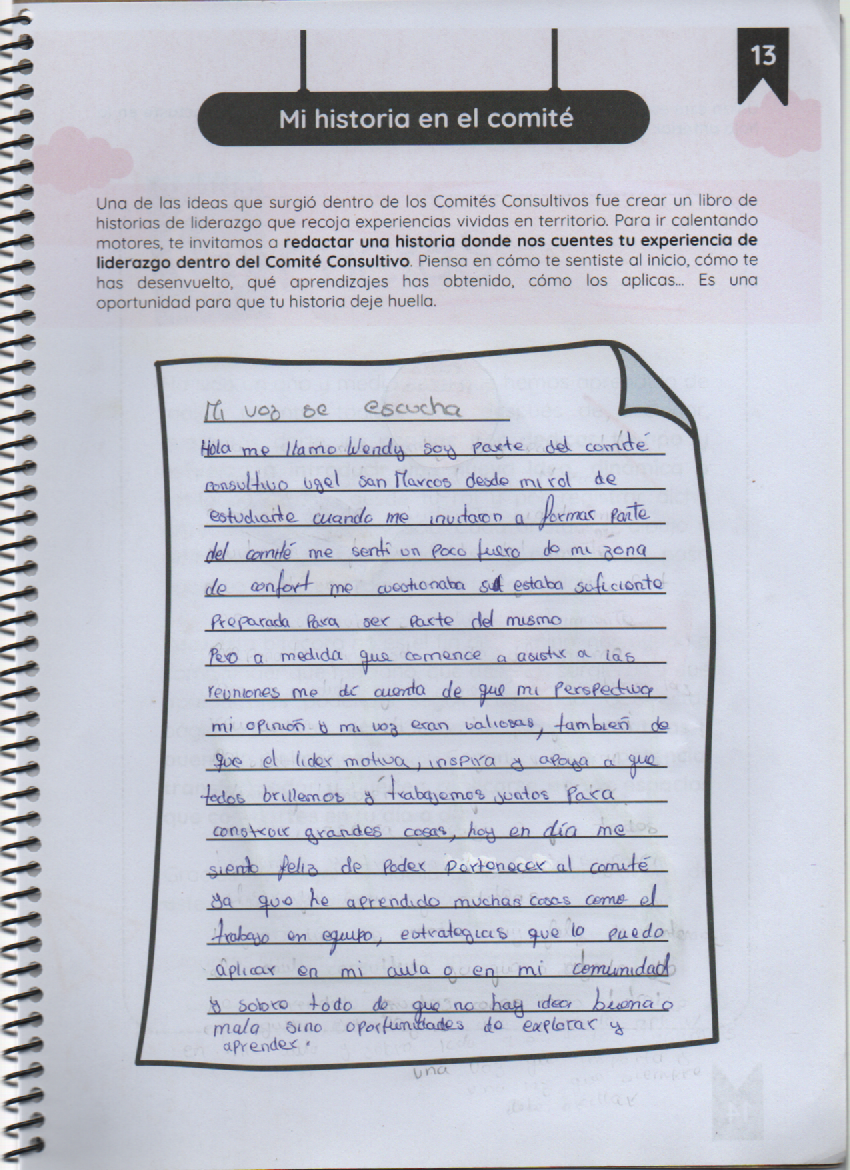 13
Mi historia en el comité
Una de las ideas que surgió dentro de los Comités Consultivos fue crear un libro de
historias de liderazgo que recoja experiencias vividas en territorio. Para ir calentando
motores, te invitamos a redactar una historia donde nos cuentes tu experiencia de
liderazgo dentro del Comité Consultivo. Piensa en cómo te sentiste al inicio, cómo te
has desenvuelto, qué aprendizajes has obtenido, cómo los aplicas... Es una
oportunidad para que tu historia deje huella.
Mi voz se escucha
Hola me llamo Wendy soy parte del comité
consultivo ugel san Marcos desde mi rol de
estudiante cuando me invitaron a formar parte
del comité me senti un poco fuera de mi zona
de confort me cuestionaba si estaba suficiente
preparada para ser parte del mismo
Pero a medida que comence a asistir a las
reuniones me di cuenta de que mi perspectiva
mi opinión y mi voz eran valiosas, también de
que el lider motiva, inspira y apoya a que
todos brillemos y trabajemos juntos para
construir grandes cosas, hoy en día me
siento feliz de poder pertenecer al comité
ya que he aprendido muchas cosas como el
trabajo en equipo, estrategias que lo puedo
aplicar en mi aula o en mi comunidad
y sobre todo de que no hay idea buena o
mala sino oportunidades de explorar y
aprender.